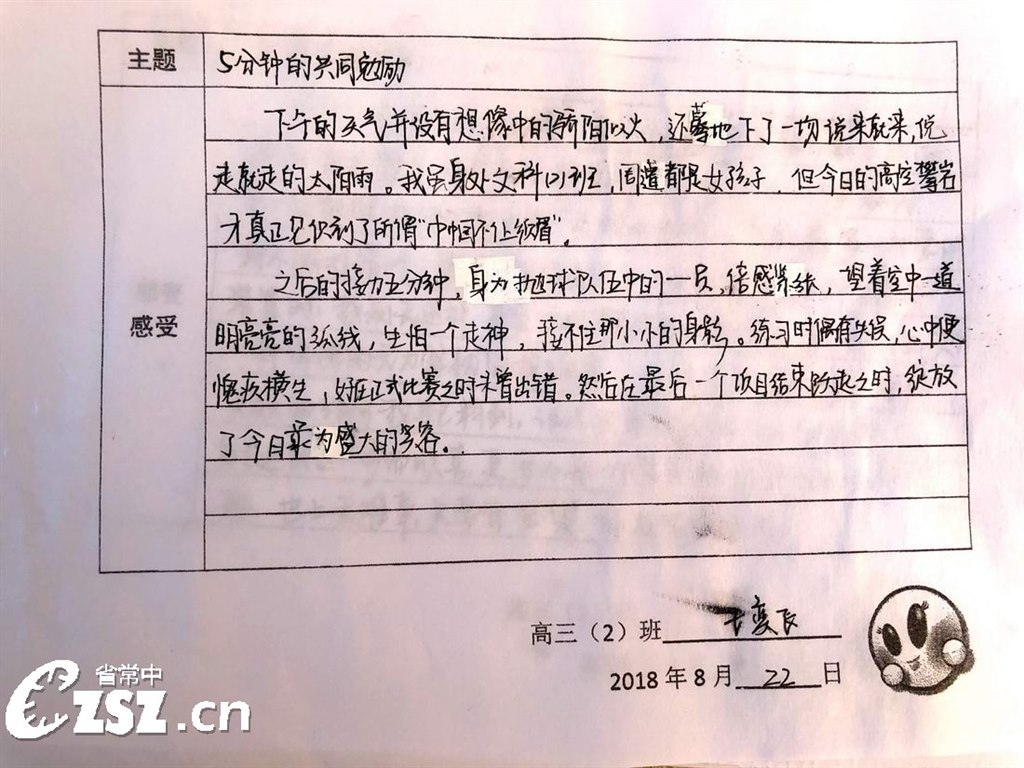 主题
5分钟的共同勉励
感受
下午的天气并没有想像中的骄阳似火,还蓦地下了一场说来就来,说
走就走的太阳雨。我虽身处文科(2)班,周遭都是女孩子,但今日的高空攀岩
才真正见识到了所谓“巾帼不让须眉”。
之后的接力五分钟,身为抛球队伍中的一员,倍感紧张,望着空中一道
明亮亮的弧线,生怕一个走神,接不住那小小的身影。练习时偶有失误,心中便
愧疚横生,好在正式比赛之时未曾出错。然后在最后一个项目结束跃起之时,绽放
了今日最为盛大的笑容。
高三(2)班
2018年8月22日
省常中
CZSZ.cn